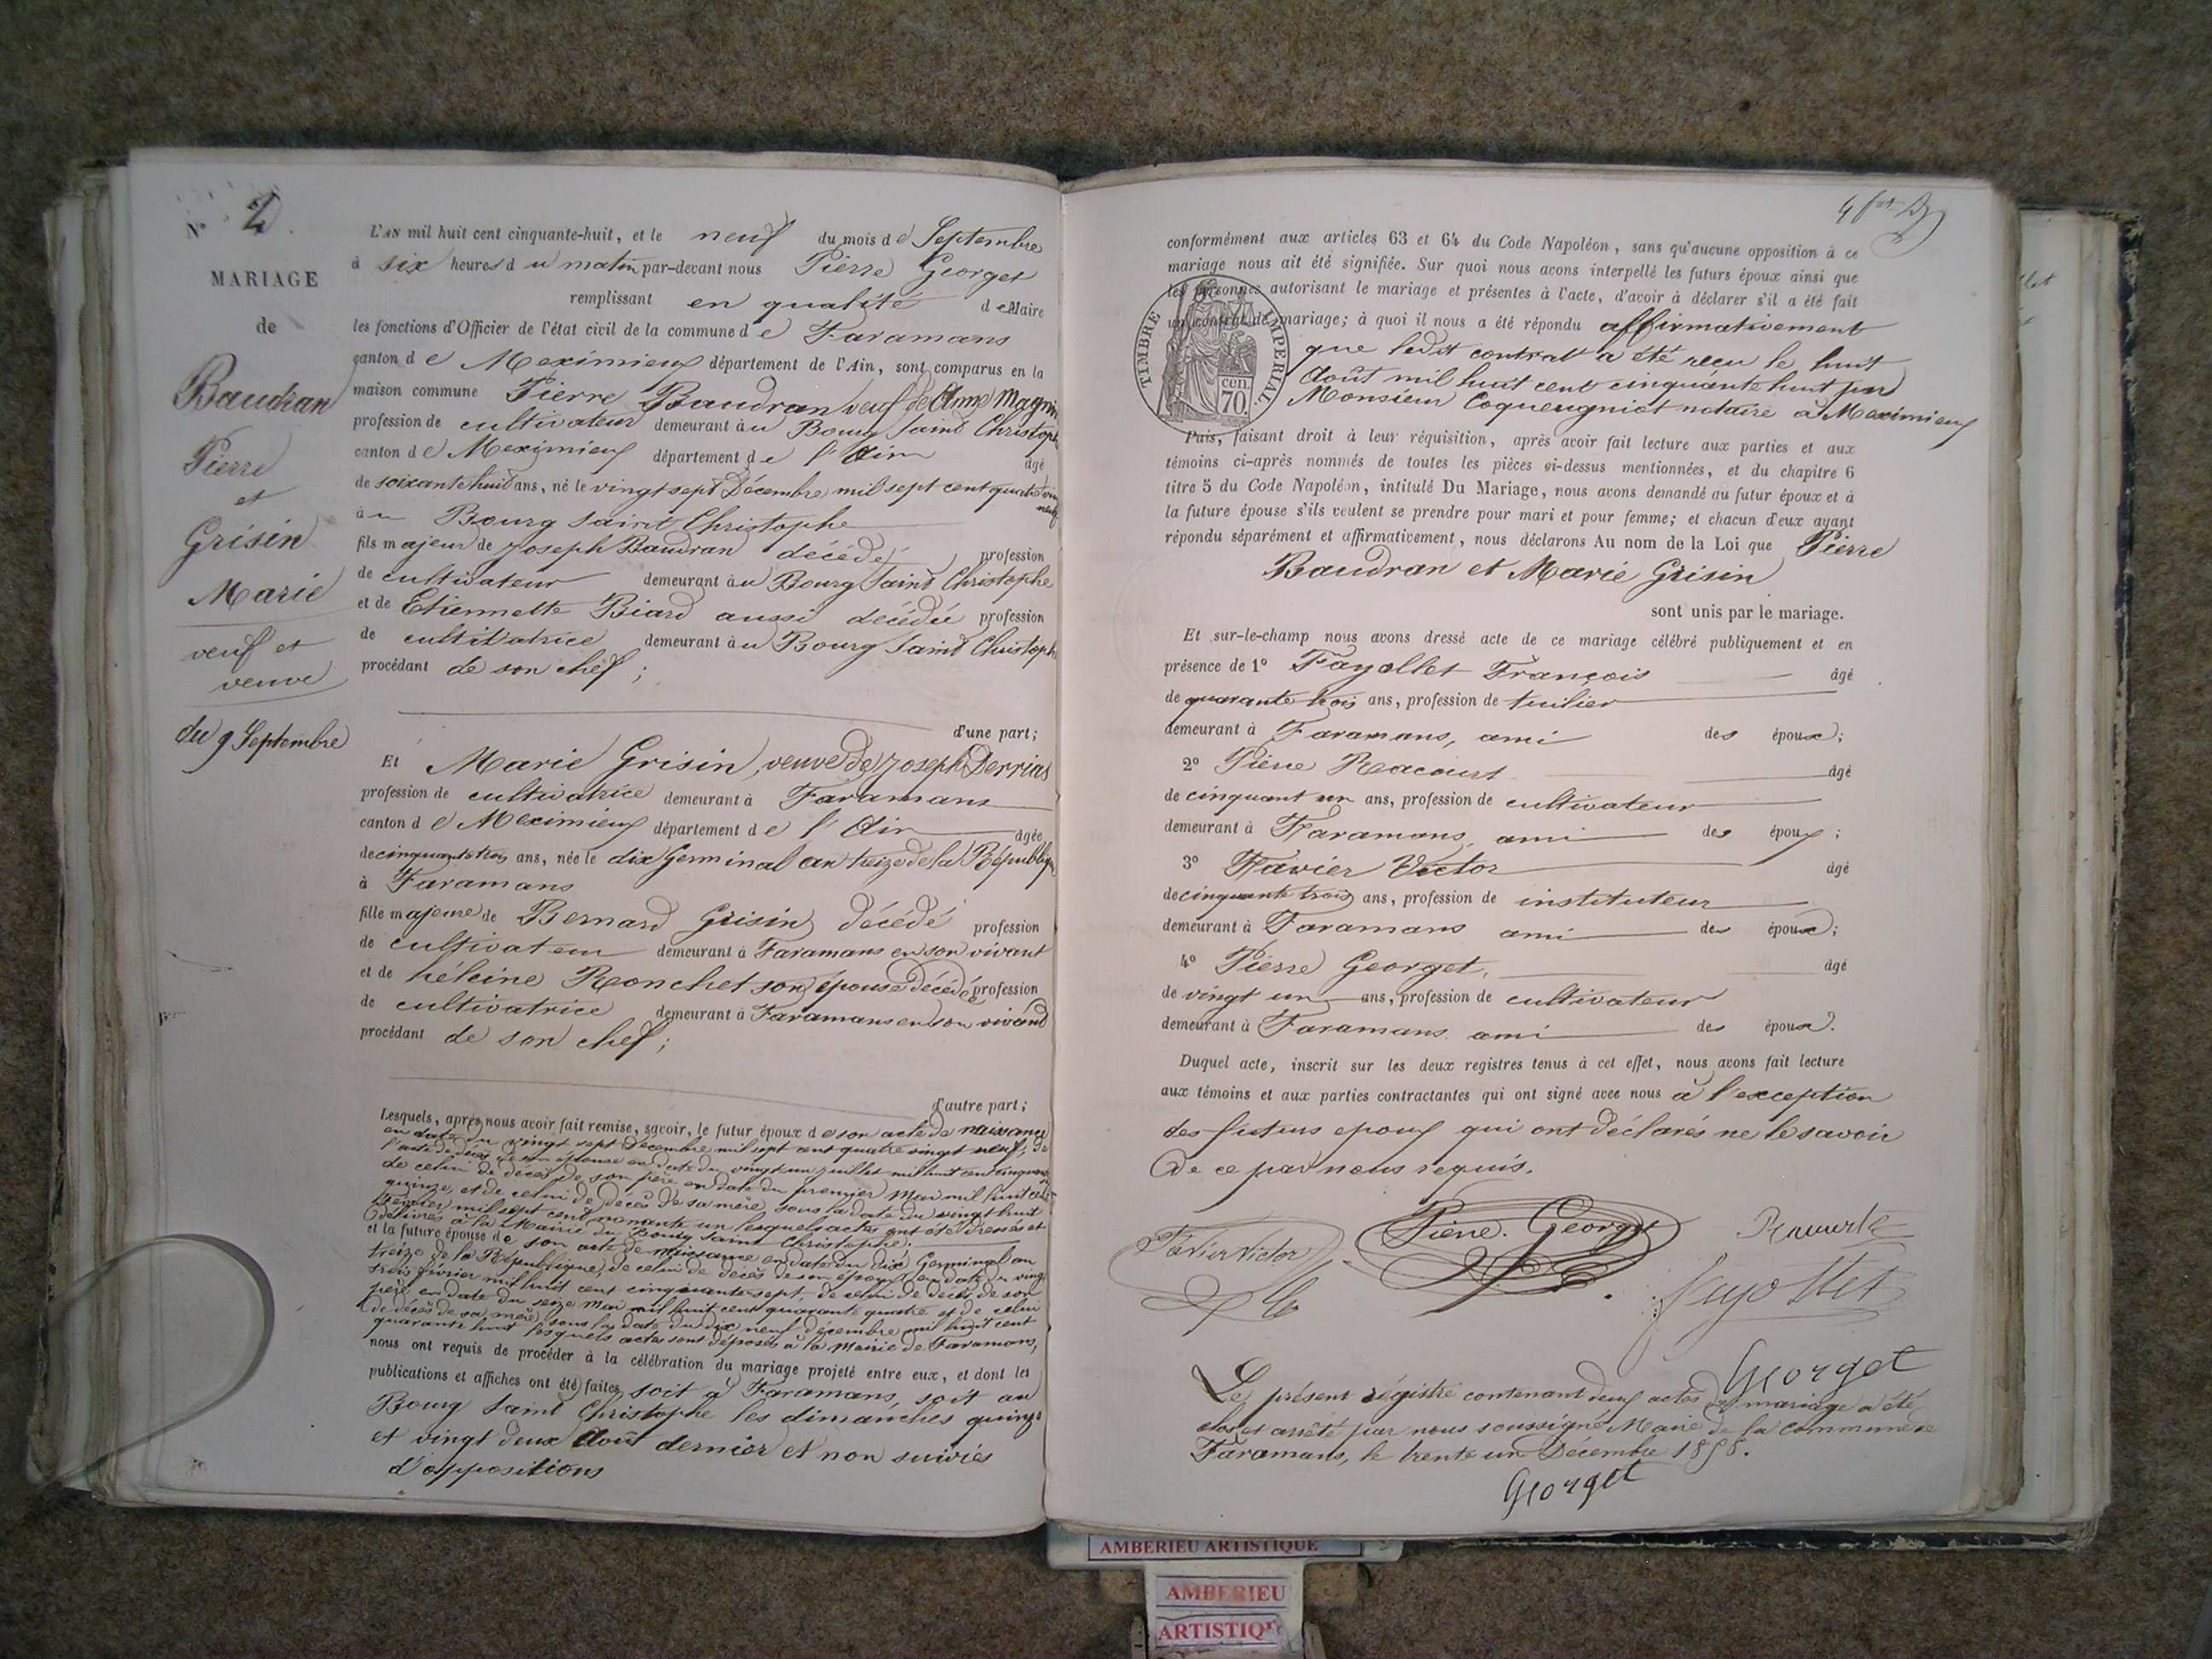 N° 2.
MARIAGE
de
Baudran
Pierre
et
Grisin
Marie
veuf et
veuve
du 9 Septembre
L'AN mil huit cent cinquante-huit, et le neuf du mois de Septembre
à six heures du matin par-devant nous Pierre Georget
remplissant en qualité de Maire
les fonctions d'Officier de l'état civil de la commune de Faramans
canton de Meximieux département de l'Ain, sont comparus en la
maison commune Pierre Baudran veuf de Anne Magnin
profession de cultivateur demeurant au Bourg Saint Christophe
canton de Meximieux département de l'Ain âgé
de soixante huit ans, né le vingt sept Décembre mil sept cent quatre vin
neuf
au Bourg Saint Christophe
fils majeur de Joseph Baudran décédé profession
de cultivateur demeurant au Bourg Saint Christophe
et de Etiennette Biard aussi décédée profession
de cultivatrice demeurant au Bourg Saint Christophe
procédant de son chef ;
d'une part;
Et Marie Grisin, veuve de Joseph Derrias
profession de cultivatrice demeurant à Faramans
canton de Meximieux département de l'Ain âgée
de cinquante trois ans, née le dix Germinal an treize de la République
à Faramans
fille majeure de Bernard Grisin décédé profession
de cultivateur demeurant à Faramans en son vivant
et de héleine Ronchet son épouse décédée profession
de cultivatrice demeurant à Faramans en son vivant
procédant de son chef ;
d'autre part;
Lesquels, après nous avoir fait remise, savoir, le futur époux de son acte de naissance
en date du vingt sept Décembre mil sept cent quatre vingt neuf, de
l'acte de décès de son épouse en date du vingt un juillet mil huit cent cinquante
de celui de décès de son père en date du premier Mai mil huit cent
quinze, et de celui de décès de sa mère, sous la date du vingt huit
Février mil sept cent nonante un lesquels actes ont été dressés et
délivrés à la Mairie du Bourg Saint Christophe.
et la future épouse de son acte de naissance en date du dix Germinal an
treize de la République, de celui de décès de son époux en date du vingt
trois février mil huit cent cinquante sept, de celui de décès de son
père en date du seize Mai mil huit cent quarante quatre et de celui
de décès de sa mère, sous la date du dix neuf décembre mil huit cent
quarante huit lesquels actes sont déposés à la Mairie de Faramans,
nous ont requis de procéder à la célébration du mariage projeté entre eux, et dont les
publications et affiches ont été faites soit à Faramans, soit au
Bourg Saint Christophe les dimanches quinze
et vingt deux Août dernier et non suivies
d'oppositions
conformément aux articles 63 et 64 du Code Napoléon, sans qu'aucune opposition à ce
mariage nous ait été signifiée. Sur quoi nous avons interpellé les futurs époux ainsi que
les personnes autorisant le mariage et présentes à l'acte, d'avoir à déclarer s'il a été fait
un contrat de mariage; à quoi il nous a été répondu affirmativement
que ledit contrat a été reçu le huit
Août mil huit cent cinquante huit par
Monsieur Coqueugniot notaire à Meximieux
TIMBRE IMPÉRIAL
cen.
70.
Puis, faisant droit à leur réquisition, après avoir fait lecture aux parties et aux
témoins ci-après nommés de toutes les pièces ci-dessus mentionnées, et du chapitre 6
titre 5 du Code Napoléon, intitulé Du Mariage, nous avons demandé au futur époux et à
la future épouse s'ils veulent se prendre pour mari et pour femme; et chacun d'eux ayant
répondu séparément et affirmativement, nous déclarons Au nom de la Loi que Pierre
Baudran et Marie Grisin
sont unis par le mariage.
Et sur-le-champ nous avons dressé acte de ce mariage célébré publiquement et en
présence de 1° Fayollet François âgé
de quarante trois ans, profession de tuilier
demeurant à Faramans, ami des époux;
2° Pierre Racourt âgé
de cinquant un ans, profession de cultivateur
demeurant à Faramans, ami des époux;
3° Favier Victor âgé
de cinquante trois ans, profession de instituteur
demeurant à Faramans ami des époux;
4° Pierre Georget, âgé
de vingt un ans, profession de cultivateur
demeurant à Faramans. ami des époux.
Duquel acte, inscrit sur les deux registres tenus à cet effet, nous avons fait lecture
aux témoins et aux parties contractantes qui ont signé avec nous à l'exception
des futurs epoux qui ont déclarés ne le savoir
De ce par nous requis.
Favier Victor Pierre. Georget
Fayollet
Georget
Le présent régistre contenant deux actes de mariage a été
clos et arrêté par nous soussigné Maire de la commune de
Faramans, le trente un Décembre 1858.
Georget
AMBERIEU ARTISTIQUE
AMBERIEU
ARTISTIQUE